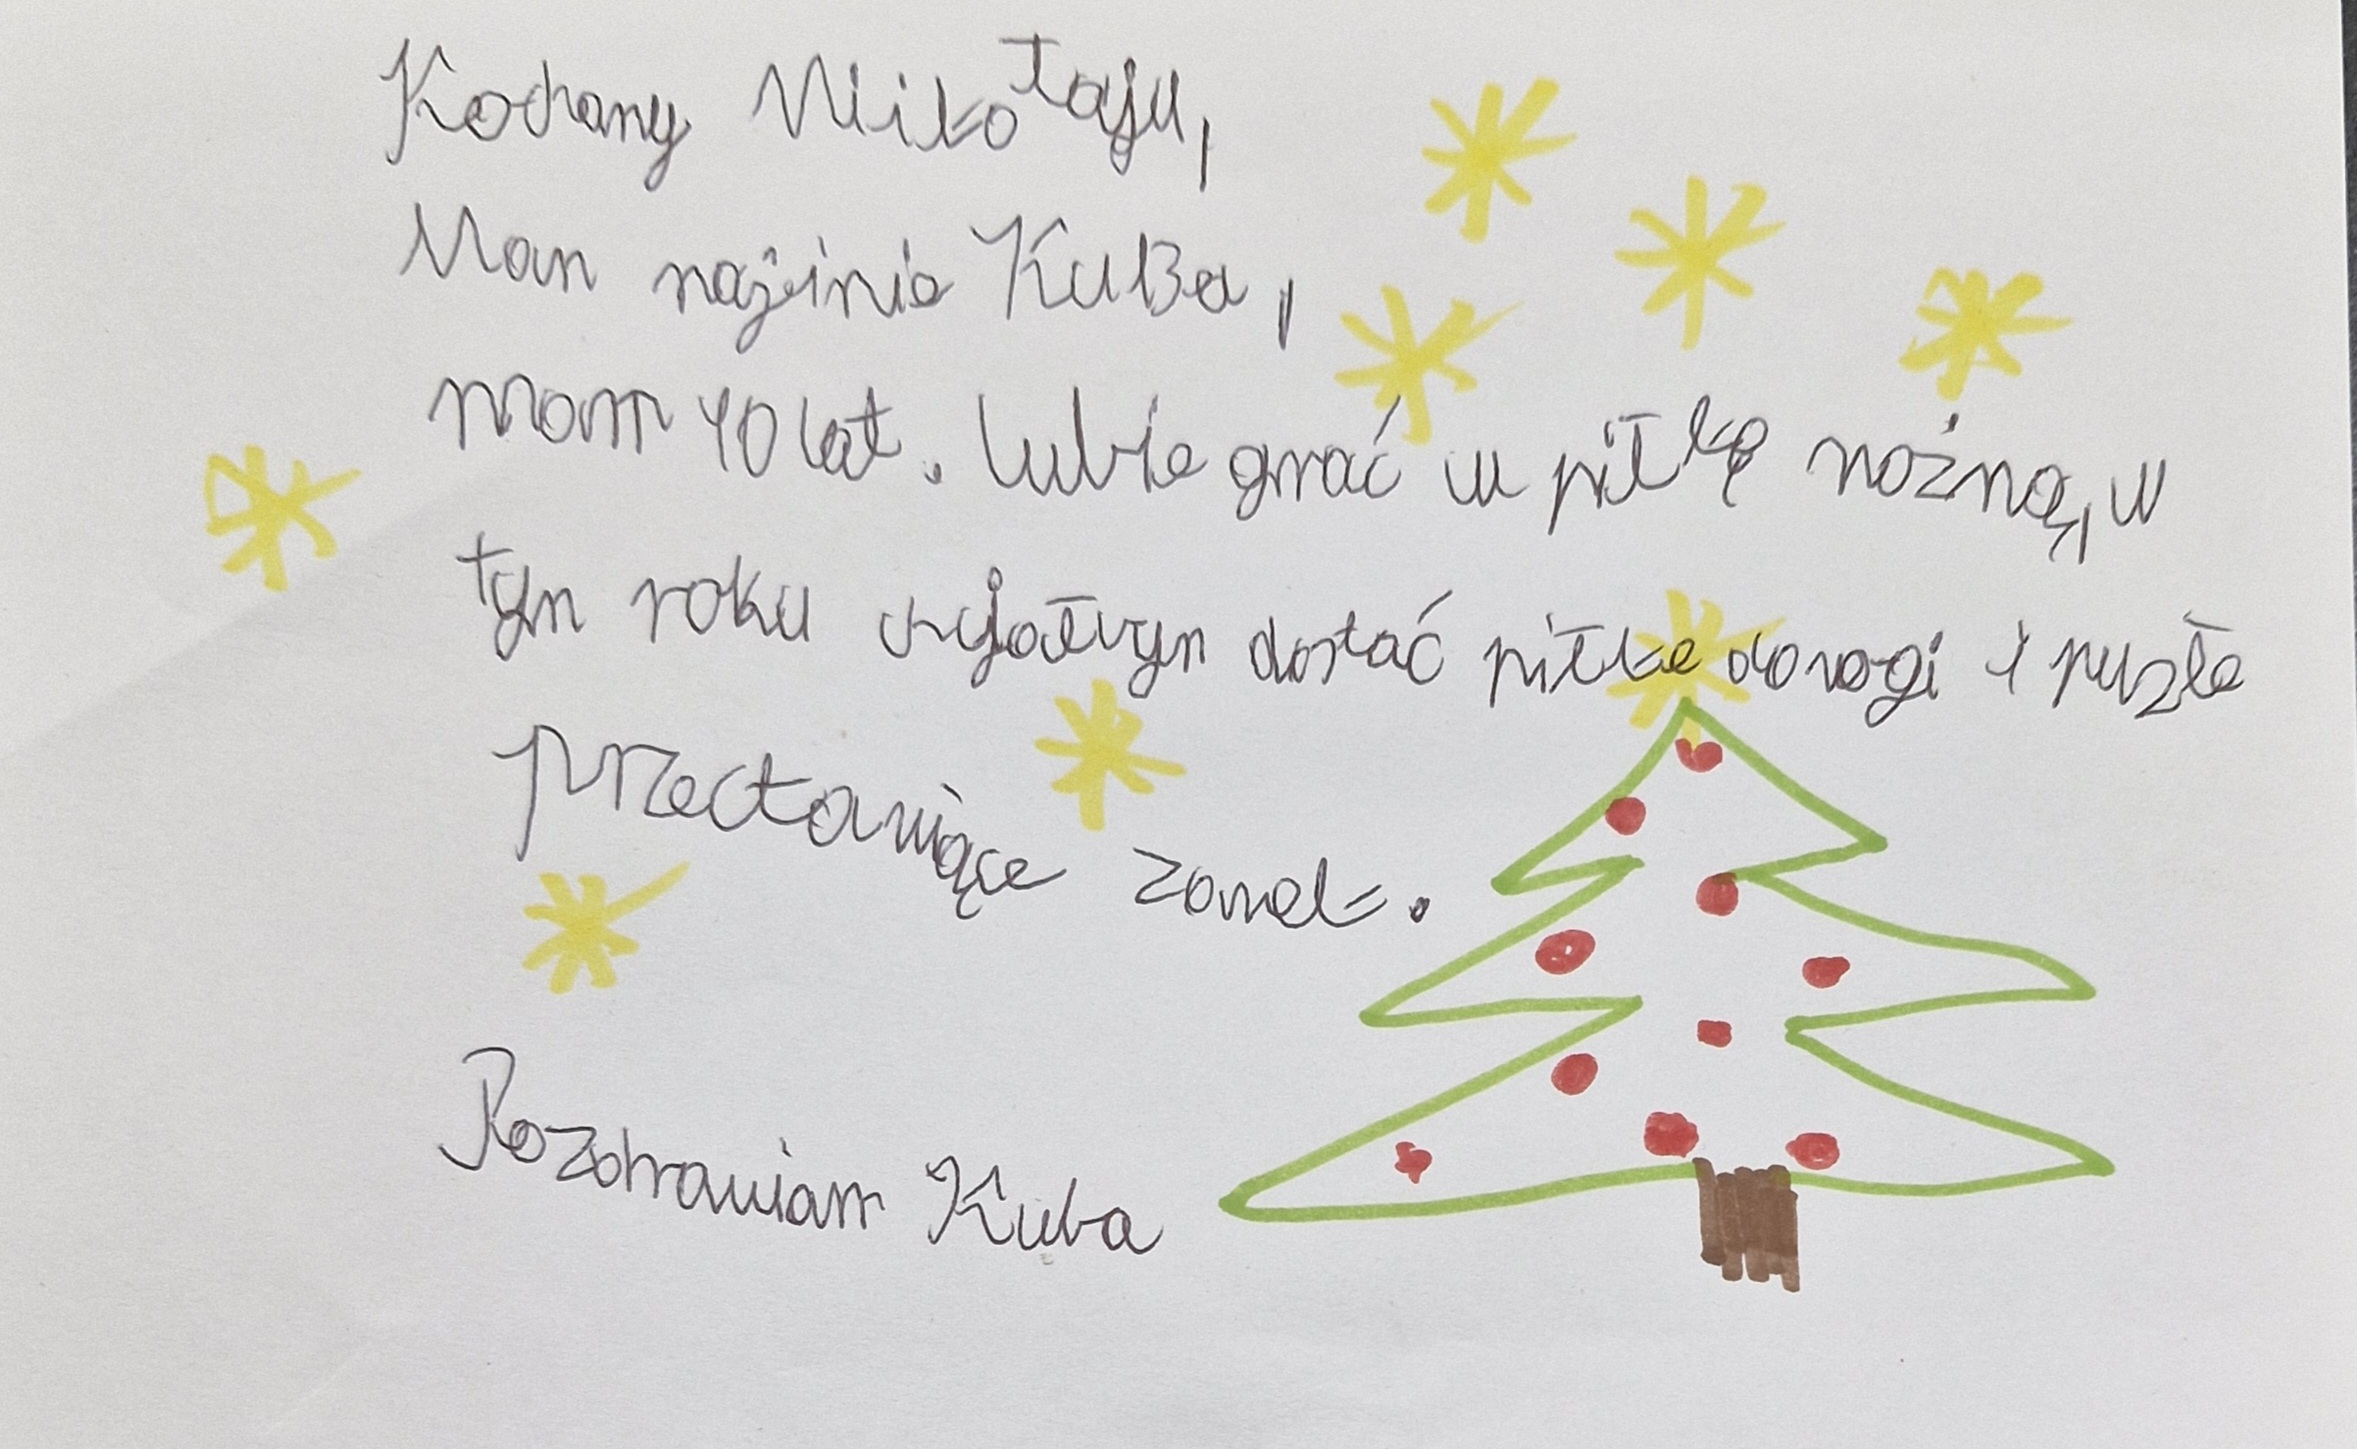 Kochany Mikołaju,
Man najinie KuBa,
mam 10 lat. lubie grać w piłkę nożną, w
tym roku dostać piłke donogi i puzle
przectawiące zamek.
Pozdrawiam Kuba